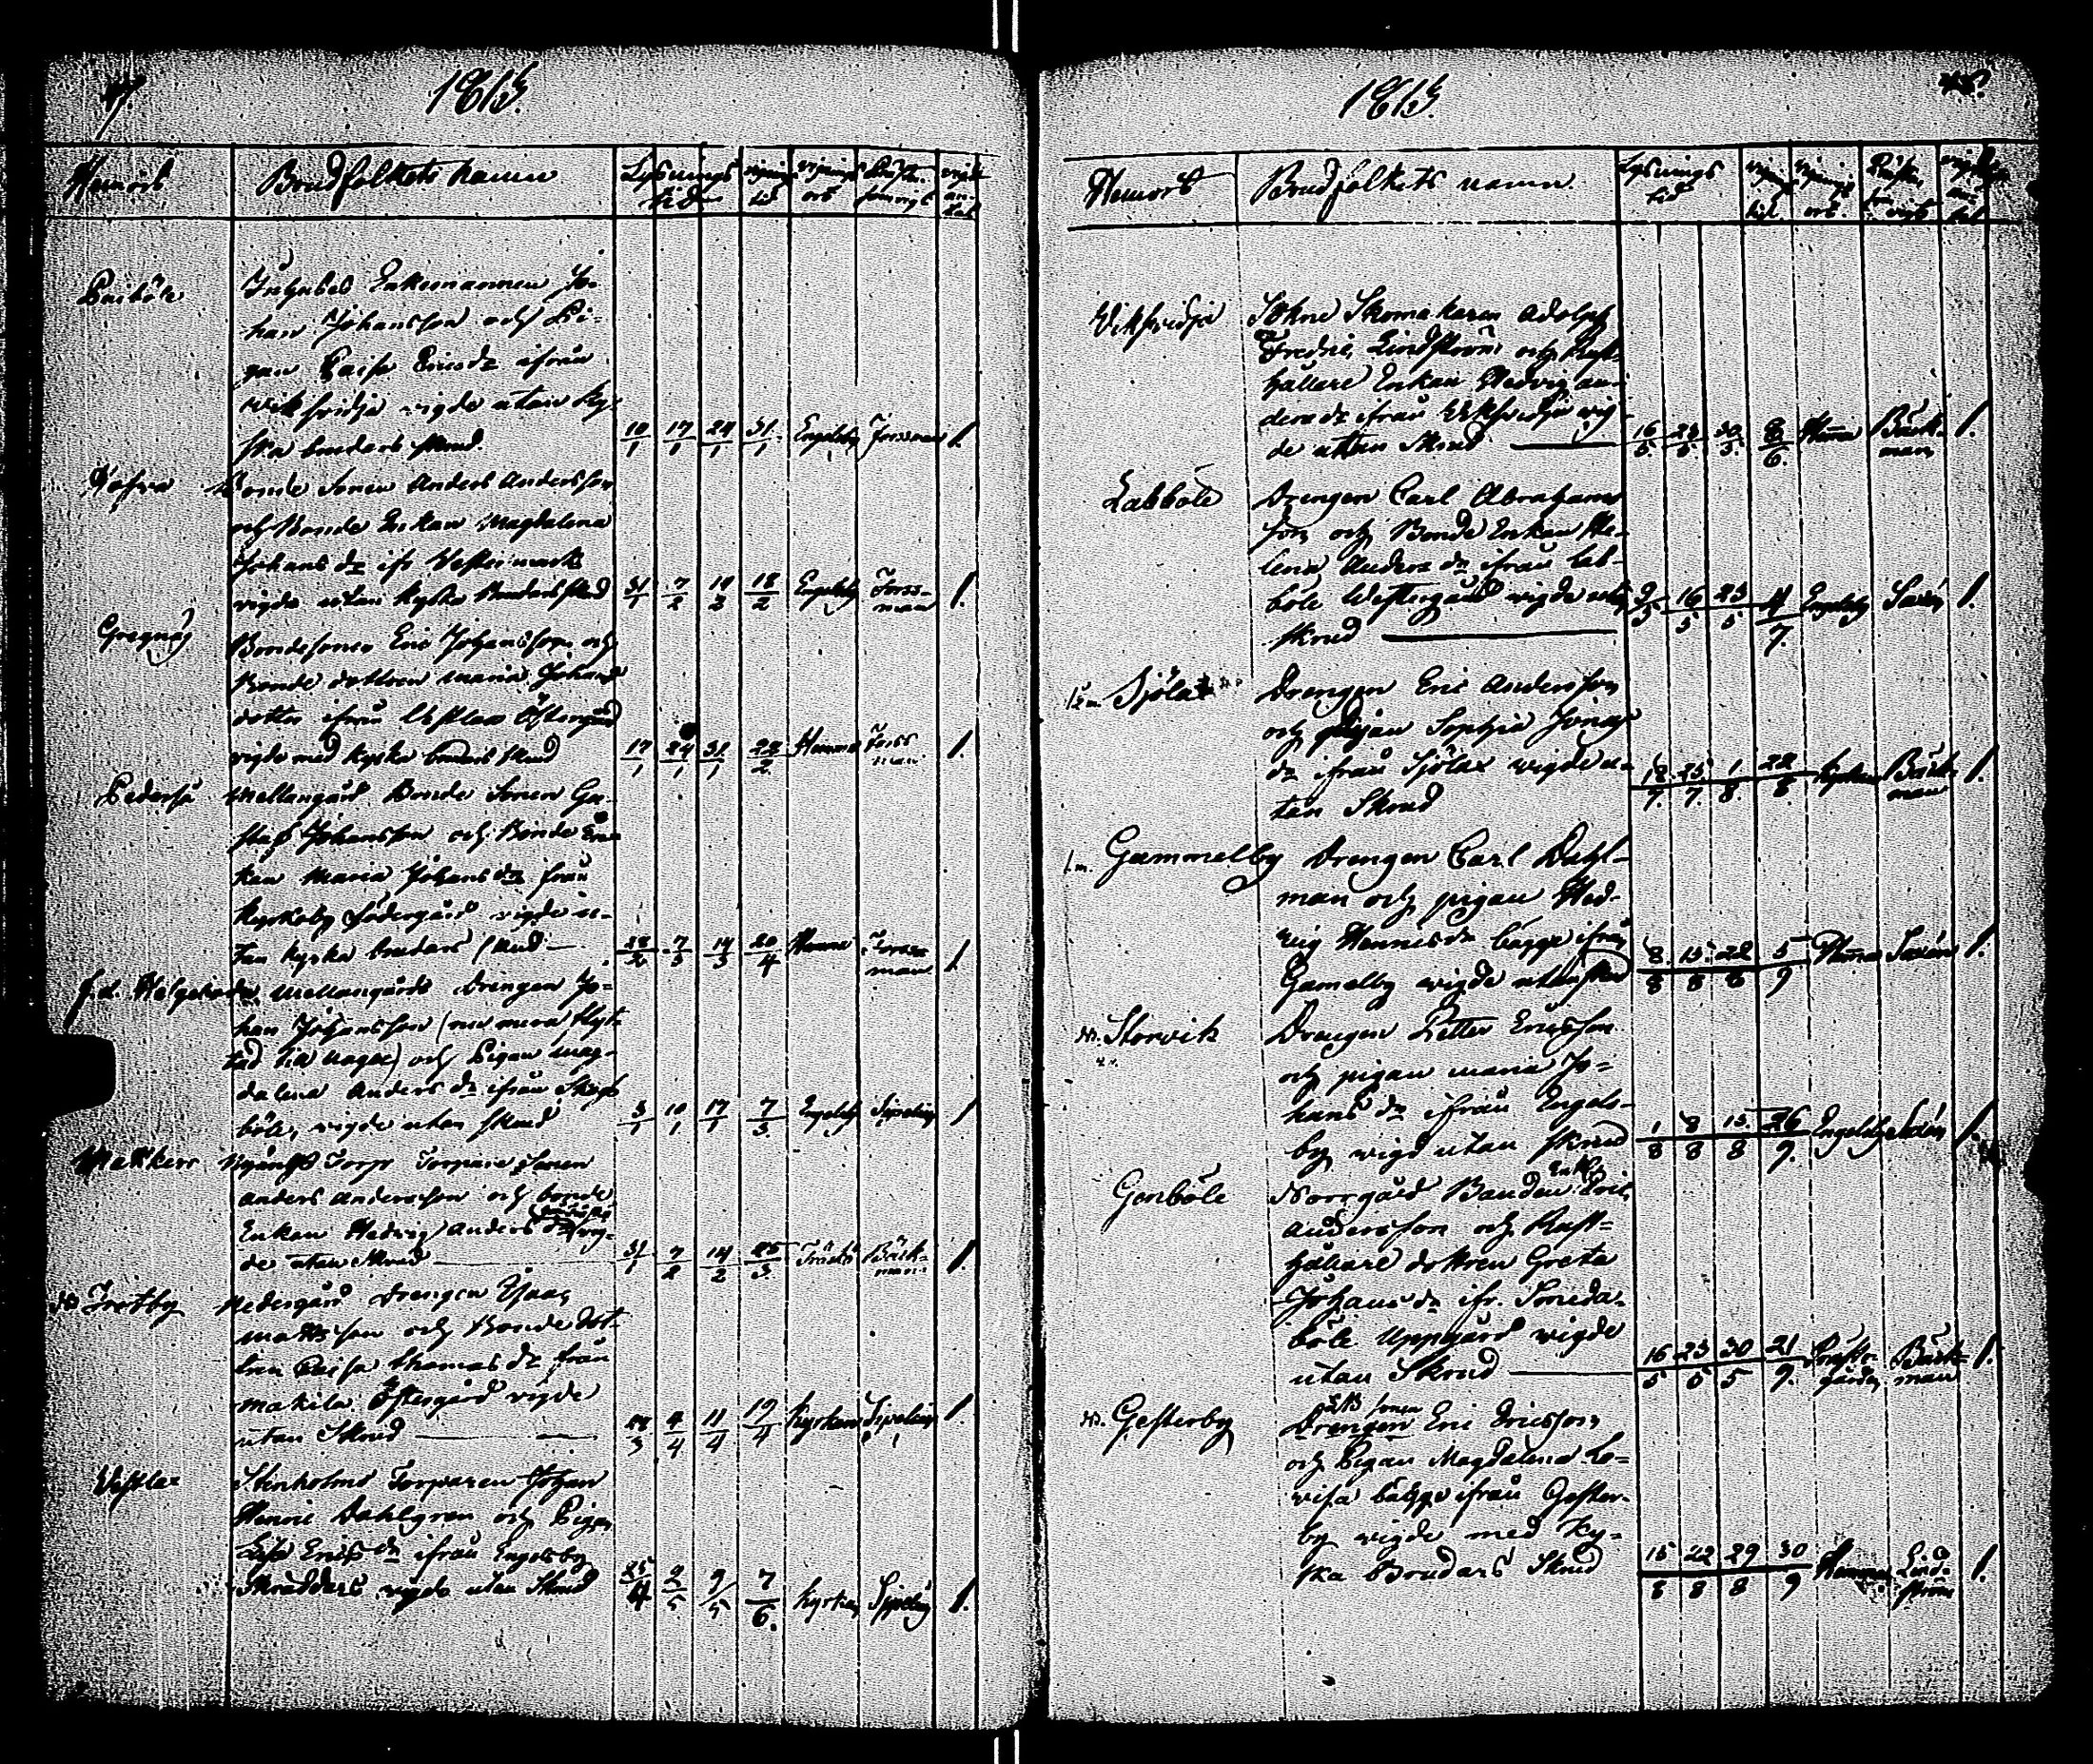 1813.
Hemort
Brudfolkets namn
Lysnings
tid
vignings
tid
vignings
ort
Inhyses Enkemannen Jo-
han Johansson och Pi-
gan Caisa Ericsdr ifrån
Vikfridja vigde utan ky-
ska brudars skrud.
10/1 17/1 24/1 31/1 Engelsby Forssman 1.
Bonde Sonen Anders Andersson
och Bonde Enkan Magdalena
Johansdr ifr Vestermark
vigde utan kyska Brudars skrud
31/1 7/2 18/2 Engelsby Forss-
man 1.
Bondesonen Eric Johansson och
Bonde dottren Maria Johans
dotter ifrån Vestlax Östergård
vigde med kyska brudars skrud
17/1 24/1 31/1 Hemma Forss
man 1.
Pederså
Mellangård Bonde Sonen Gu-
staf Johansson och Bonde En-
kan Maria Johansdr från
Kyrkoby Södergård vigde u-
tan kyska brudars skrud
7/3 14/3 20/4 Hemma Forss-
man 1.
Mellangårds Drengen Jo-
han Johansson (nu mera flyt-
tad till ) och Pigan Mag-
dalena Andersdr ifrån
böle, vigde utan skrud
3/1 10/1 17/1 7/3 Engelsby Sipelius 1
Torp Torpare Sonen
Anders Andersson och bonde
Enkan Hedvig Andersdr vig-
de utan Skrud
31/1 7/2 14/2 25/3 Bäck-
man 1.
Nedergård Drengen Isaac
Mattsson och Bonde dot-
tren Caisa Thomasdr från
Makila Östergård vigde
utan Skrud
4/4 11/4 19/4 Kyrkan Sipelius 1.
Vestlax
Stenholms Torparen Johan
Henric Dahlgren och Pigan
Lisa Ericsdr ifrån Engelsby
Skräddars vigde utan Skrud
25/4 2/5 9/5 7/6. Kyrkan Sipelius 1.
1813.
Hemort
Brudfolkets namn.
Lysnings
tid
Vikfridja
Sokne Skomakaren Adolph
Fredric Lindström och Rust-
hållare Enkan Hedvig An-
dersdr ifrån Vikfridja vig-
de utan Skrud
16/5. 23/5. 30/5. 6. Hemma Bäck-
man 1.
Labböle
Drengen Carl Abrahams
son och Bonde Enkan He-
lena Andersdr ifrån Lab-
böle Westergård vigde utan
skrud
9/5 16/5 23/5 7. Engelsby 1.
Sjölax
Drengen Eric Andersson
och Pigan Sophia Jonas
dr ifrån Sjölax vigde u-
tan Skrud
18/7. 25/7. 1/8. 22/8. Kyrkan Bäck-
man 1.
Gammelby
Drengen Carl Dahl-
man och pigan Hed-
vig Hennisdr bägge ifrån
Gamelby vigde utan skrud
8/8 15/8 22/8 5/9 Hemma 1.
Storvik
Drengen Petter Ericsson
och pigan Maria Jo-
hansdr ifrån Engels-
by vigd utan skrud
1/8 8/8 15/8 26/9. Engelsby 1.
Genböle
Norrgård Bonden Enkl. Eric
Andersson och Rust-
hållare dottren Greta
Johansdr ifr. Smeda-
böle Uppgård vigde
utan Skrud
16/5 23/5 30/5 21/9. Prest-
gården Bäck-
man 1.
Gesterby
sonen
Drengen Eric Ericsson
och Pigan Magdalena Lo-
visa bägge ifrån Gester-
by vigde med ky-
ska Brudars Skrud
15/8 22/8 29/8 30/9 Hemma Lind-
ström 1.